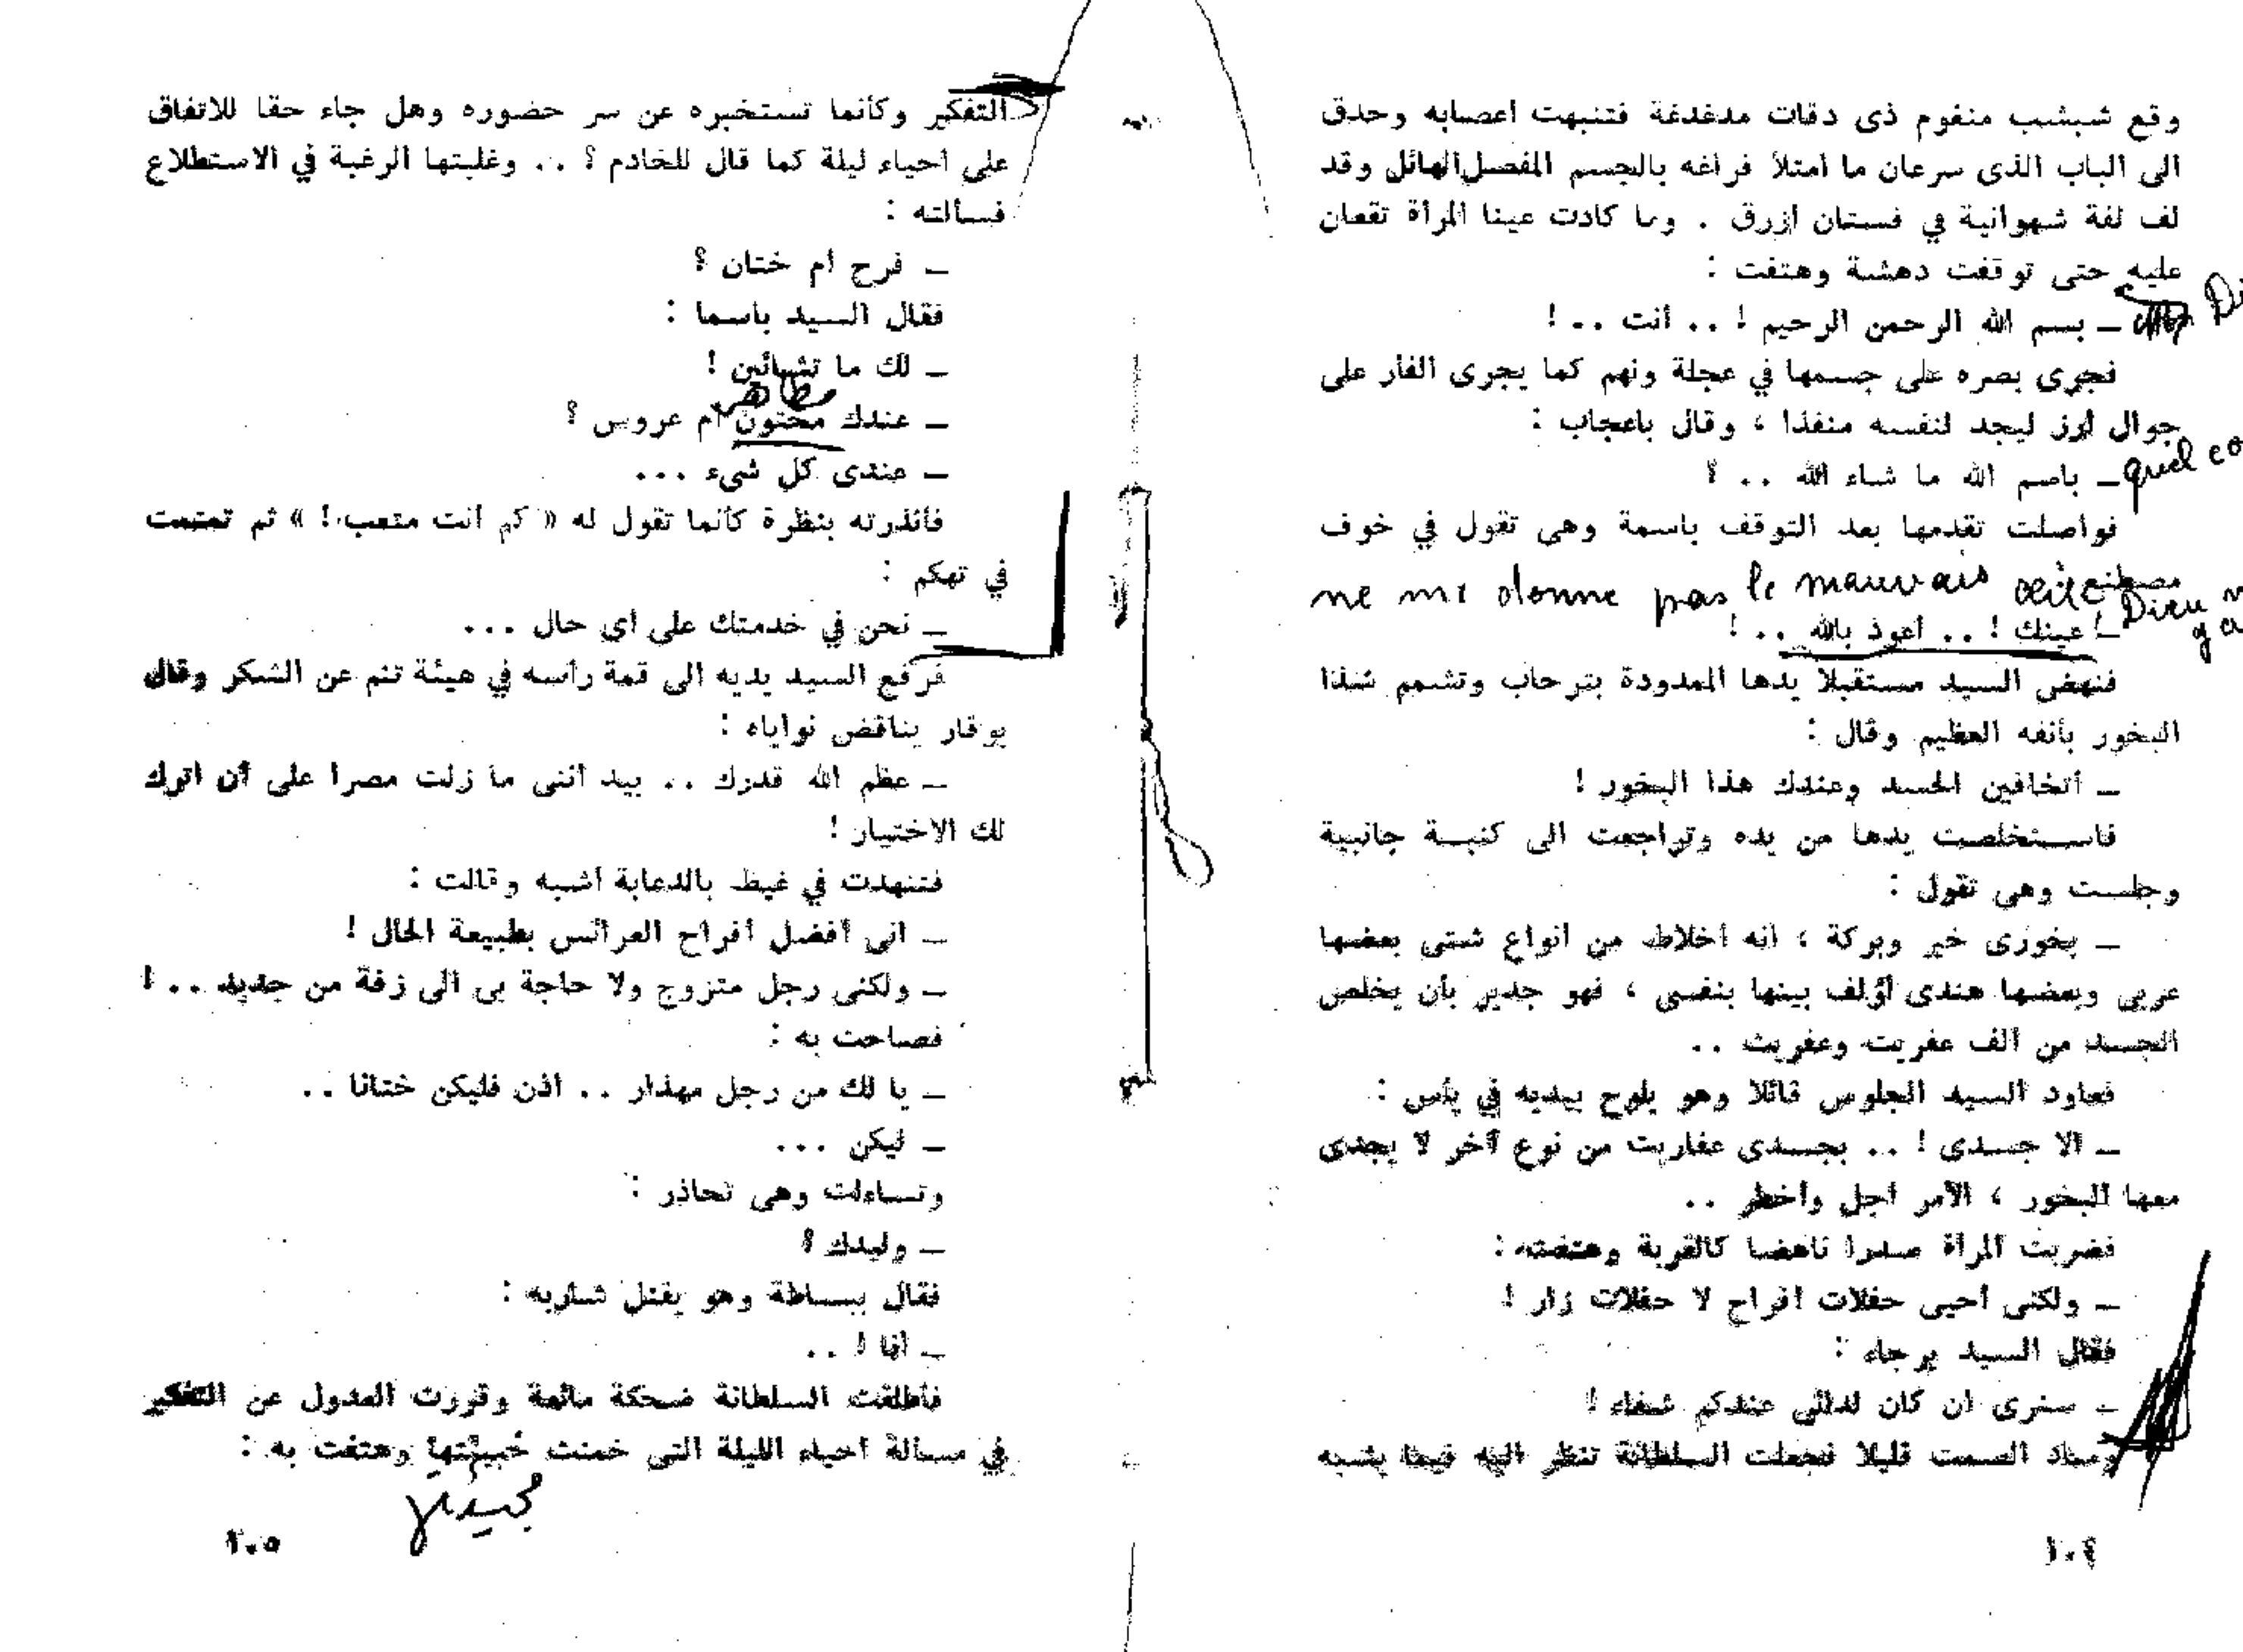 وقع شبشب منغوم ذى دقات مدغدغة فتنبهت اعصابه وحدق
الى الباب الذى سرعان ما امتلأ فراغه بالجسم المفصل الهائل وقد
لف لفة شهوانية في فستان ازرق . وما كادت عينا المرأة تقعان
عليه حتى توقفت دهشة وهتفت :
ـ بسم الله الرحمن الرحيم ! .. أنت .. !
Di
فجرى بصره على جسمها في عجلة ونهم كما يجرى الفأر على
جوال أرز ليجد لنفسه منفذا ، وقال باعجاب :
quel co
ـ باسم الله ما شاء الله .. ؟
فواصلت تقدمها بعد التوقف باسمة وهى تقول في خوف
مصطنع
ne me donne pas le mauvais œil
Dieu m
ga
ـ عينك ! .. أعوذ بالله .. !
فنهض السيد مستقبلا يدها الممدودة بترحاب وتشمم شذا
البخور بأنفه العظيم وقال :
ـ أتخافين الحسد وعندك هذا البخور !
فاستخلصت يدها من يده وتراجعت الى كنبة جانبية
وجلست وهى تقول :
ـ بخورى خير وبركة ، انه اخلاط من أنواع شتى بعضها
عربى وبعضها هندى أؤلف بينها بنفسى ، فهو جدير بأن يخلص
الجسد من ألف عفريت وعفريت ..
فعاود السيد الجلوس قائلا وهو يلوح بيديه في يأس :
ـ الا جسدى ! .. بجسدى عفاريت من نوع آخر لا يجدى
معها البخور ، الأمر اجل وأخطر ..
فضربت المرأة صدرا ناهضا كالقربة وهتفت :
ـ ولكنى أحيى حفلات افراح لا حفلات زار !
فقال السيد برجاء :
ـ سنرى ان كان لدائى عندكم شفاء !
وساد الصمت قليلا فجعلت السلطانة تنظر اليه فيما يشبه
١٠٤
التفكير وكأنما تستخبره عن سر حضوره وهل جاء حقا للاتفاق
على احياء ليلة كما قال للخادم ؟ .. وغلبتها الرغبة في الاستطلاع
فسألته :
ـ فرح أم ختان ؟
فقال السيد باسما :
ـ لك ما تشائين !
مطاهر
ـ عندك مختون أم عروس ؟
ـ عندى كل شىء ...
فأنذرته بنظرة كأنما تقول له « كم أنت متعب ! » ثم تمتمت
في تهكم :
ـ نحن في خدمتك على أى حال ...
فرفع السيد يديه الى قمة رأسه في هيئة تنم عن الشكر وقال
بوقار يناقض نواياه :
ـ عظم الله قدرك .. بيد اننى ما زلت مصرا على أن اترك
لك الاختيار !
فتنهدت في غيظ بالدعابة أشبه وقالت :
ـ انى أفضل أفراح العرائس بطبيعة الحال !
ـ ولكنى رجل متزوج ولا حاجة بى الى زفة من جديد .. !
فصاحت به :
ـ يا لك من رجل مهذار .. اذن فليكن ختانا ..
ـ ليكن ...
وتساءلت وهى تحاذر :
ـ وليدك ؟
فقال ببساطة وهو يفتل شاربه :
ـ أنا ! ..
فأطلقت السلطانة ضحكة مائعة وقررت العدول عن التفكير
في مسألة احياء الليلة التى خمنت خبيئتها وهتفت به :
١٠٥